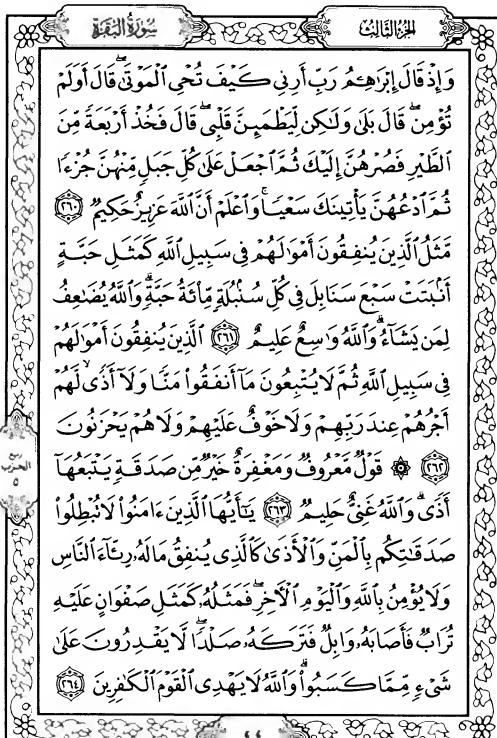 الجزء الثالث
سورة البقرة
وَإِذْ قَالَ إِبْرَٰهِـۧمُ رَبِّ أَرِنِى كَيْفَ تُحْىِ ٱلْمَوْتَىٰ ۖ قَالَ أَوَلَمْ
تُؤْمِن ۖ قَالَ بَلَىٰ وَلَٰكِن لِّيَطْمَئِنَّ قَلْبِى ۖ قَالَ فَخُذْ أَرْبَعَةً مِّنَ
ٱلطَّيْرِ فَصُرْهُنَّ إِلَيْكَ ثُمَّ ٱجْعَلْ عَلَىٰ كُلِّ جَبَلٍ مِّنْهُنَّ جُزْءًا
ثُمَّ ٱدْعُهُنَّ يَأْتِينَكَ سَعْيًا ۚ وَٱعْلَمْ أَنَّ ٱللَّهَ عَزِيزٌ حَكِيمٌ ٢٦٠
مَّثَلُ ٱلَّذِينَ يُنفِقُونَ أَمْوَٰلَهُمْ فِى سَبِيلِ ٱللَّهِ كَمَثَلِ حَبَّةٍ
أَنۢبَتَتْ سَبْعَ سَنَابِلَ فِى كُلِّ سُنۢبُلَةٍ مِّا۟ئَةُ حَبَّةٍ ۗ وَٱللَّهُ يُضَٰعِفُ
لِمَن يَشَآءُ ۗ وَٱللَّهُ وَٰسِعٌ عَلِيمٌ ٢٦١ ٱلَّذِينَ يُنفِقُونَ أَمْوَٰلَهُمْ
فِى سَبِيلِ ٱللَّهِ ثُمَّ لَا يُتْبِعُونَ مَآ أَنفَقُوا۟ مَنًّا وَلَآ أَذًى ۙ لَّهُمْ
أَجْرُهُمْ عِندَ رَبِّهِمْ وَلَا خَوْفٌ عَلَيْهِمْ وَلَا هُمْ يَحْزَنُونَ
٢٦٢ ۞ قَوْلٌ مَّعْرُوفٌ وَمَغْفِرَةٌ خَيْرٌ مِّن صَدَقَةٍ يَتْبَعُهَآ
أَذًى ۗ وَٱللَّهُ غَنِىٌّ حَلِيمٌ ٢٦٣ يَٰٓأَيُّهَا ٱلَّذِينَ ءَامَنُوا۟ لَا تُبْطِلُوا۟
صَدَقَٰتِكُم بِٱلْمَنِّ وَٱلْأَذَىٰ كَٱلَّذِى يُنفِقُ مَالَهُۥ رِئَآءَ ٱلنَّاسِ
وَلَا يُؤْمِنُ بِٱللَّهِ وَٱلْيَوْمِ ٱلْءَاخِرِ ۖ فَمَثَلُهُۥ كَمَثَلِ صَفْوَانٍ عَلَيْهِ
تُرَابٌ فَأَصَابَهُۥ وَابِلٌ فَتَرَكَهُۥ صَلْدًا ۖ لَّا يَقْدِرُونَ عَلَىٰ
شَىْءٍ مِّمَّا كَسَبُوا۟ ۗ وَٱللَّهُ لَا يَهْدِى ٱلْقَوْمَ ٱلْكَٰفِرِينَ ٢٦٤
ربع
الحزب
٥
٤٤